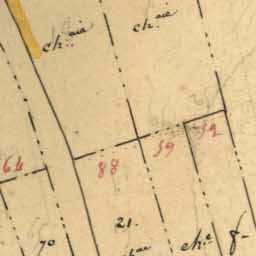 ch.aie
ch.aie
64
88
59
52
21.
70
ch.e